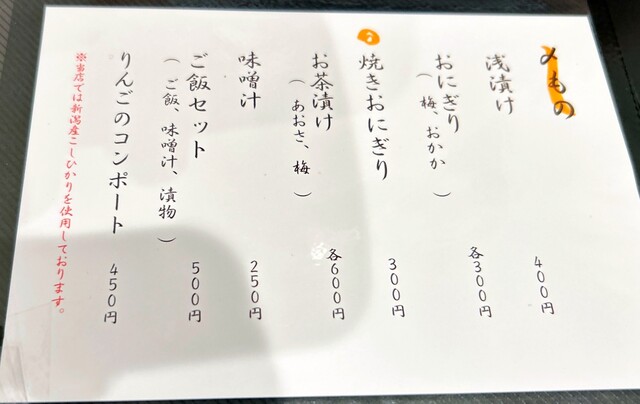 〆もの
浅漬け 400円
おにぎり 各300円
(梅、おかか)
焼きおにぎり 300円
お茶漬け 各600円
(あおさ、梅)
味噌汁 250円
ご飯セット 500円
(ご飯、味噌汁、漬物)
りんごのコンポート 450円
※当店では新潟産こしひかりを使用しております。